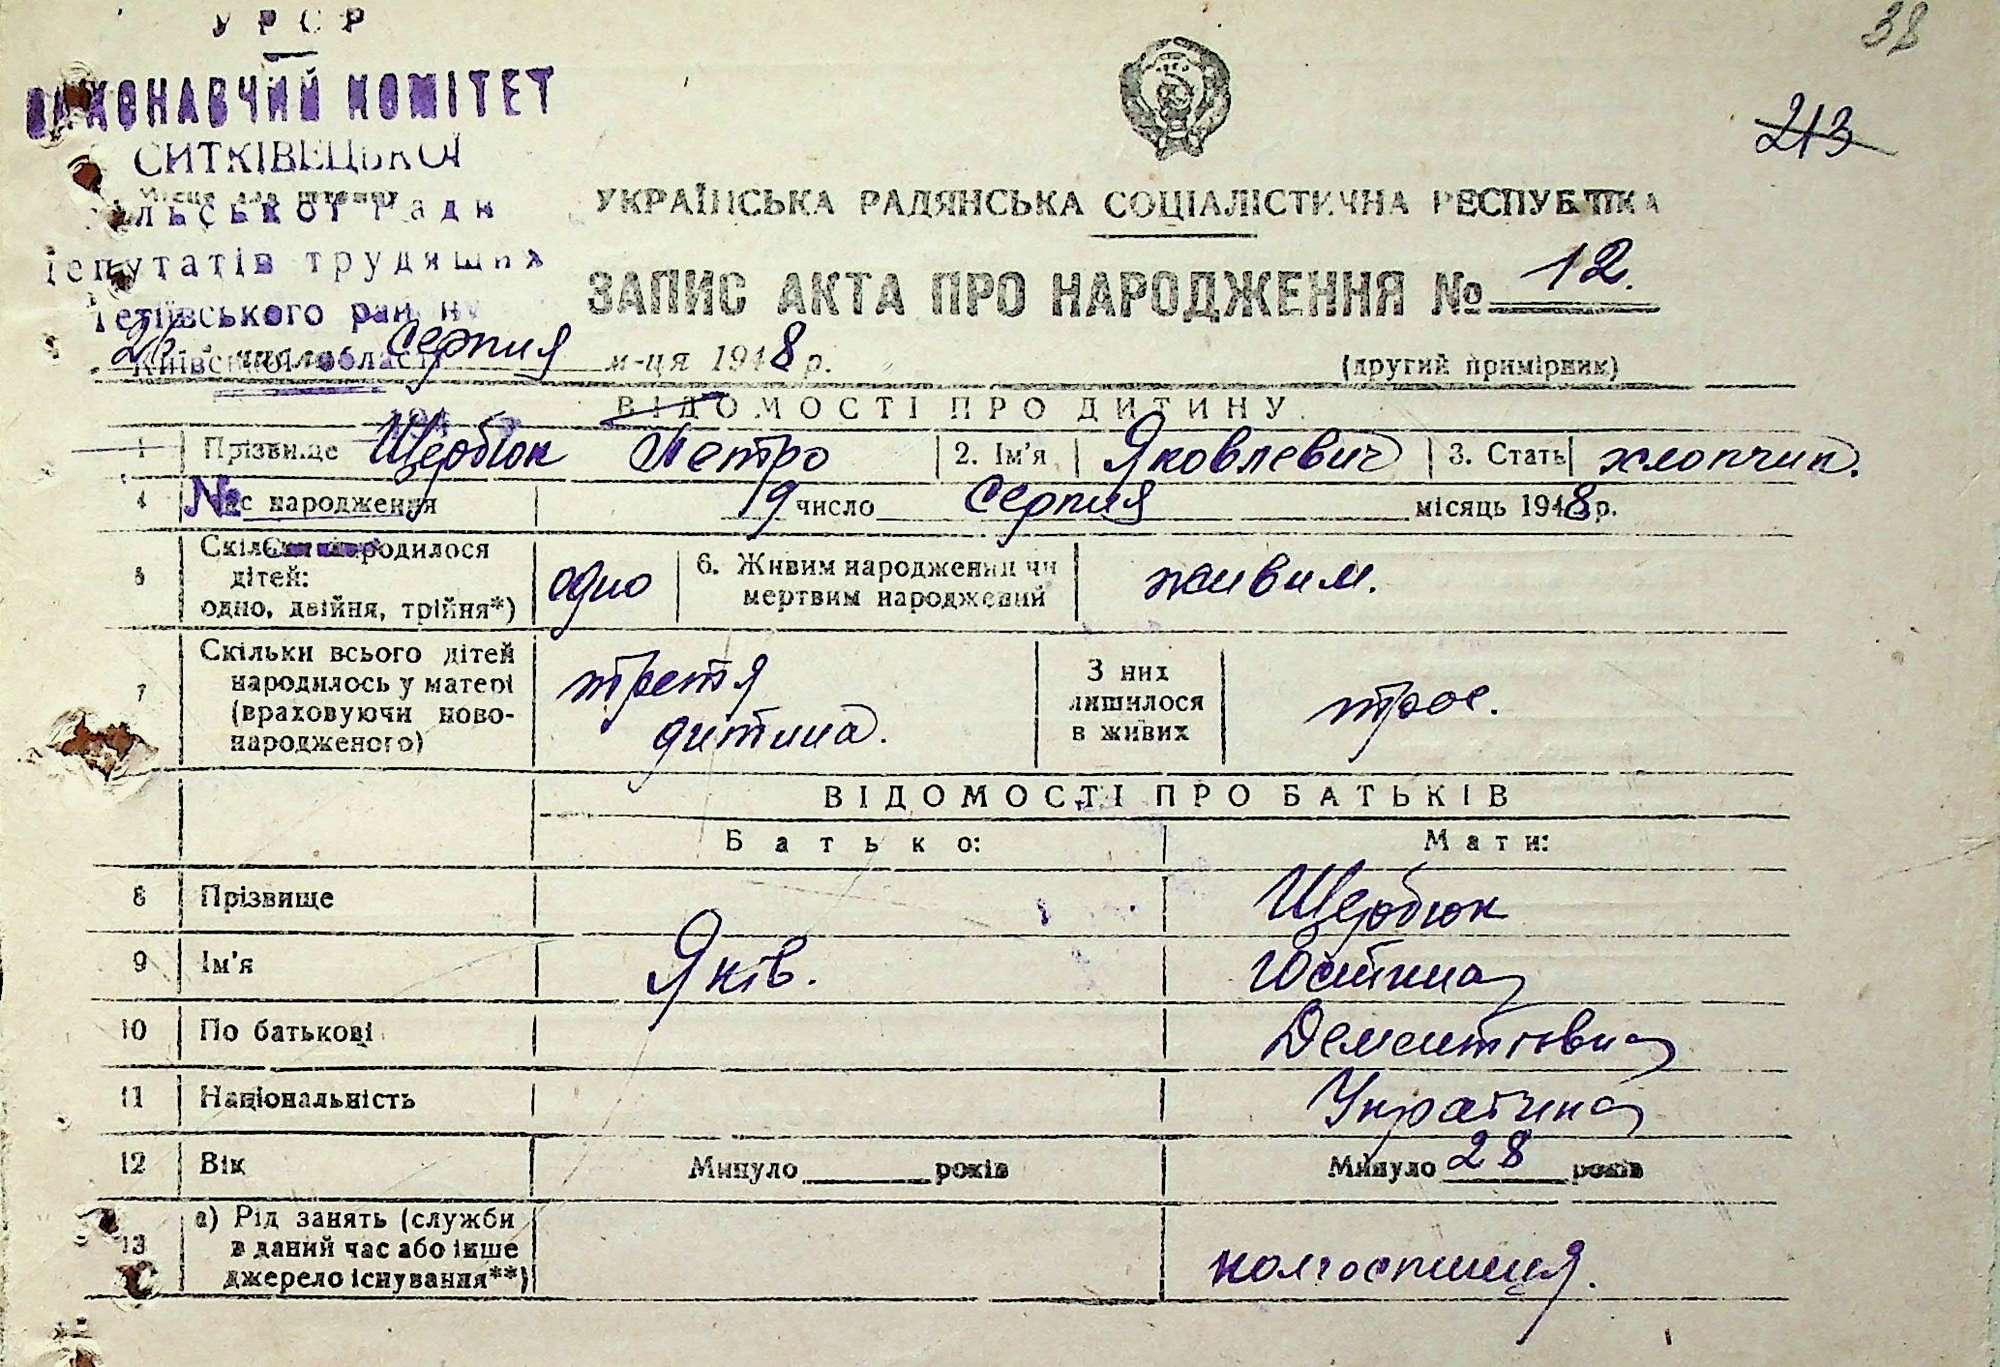 УРСР
38
ВИКОНАВЧИЙ КОМІТЕТ
213
СИТКІВЕЦЬКОЇ
Місце для штампу
сільської Ради
УКРАЇНСЬКА РАДЯНСЬКА СОЦІАЛІСТИЧНА РЕСПУБЛІКА
депутатів трудящих
ЗАПИС АКТА ПРО НАРОДЖЕННЯ № 12.
Тетіївського району
Київської області
26 числа серпня м-ця 1948 р.
(другий примірник)
194
ВІДОМОСТІ ПРО ДИТИНУ
1 Прізвище Щербюк Петро 2. Ім'я Яковлевич 3. Стать хлопчик.
4 Час народження 19 число серпня місяць 1948 р.
№
5 Скільки народилося дітей: одно, двійня, трійня*) одно 6. Живим народжений чи мертвим народжений живим.
7 Скільки всього дітей народилось у матері (враховуючи новонародженого) третя дитина. З них лишилося в живих троє.
ВІДОМОСТІ ПРО БАТЬКІВ
Батько: Мати:
8 Прізвище Щербюк
9 Ім'я Яків. Юстина
10 По батькові Дементівна
11 Національність Українка
12 Вік Минуло років Минуло 28 років
13 а) Рід занять (служби в даний час або інше джерело існування**) колгоспниця.